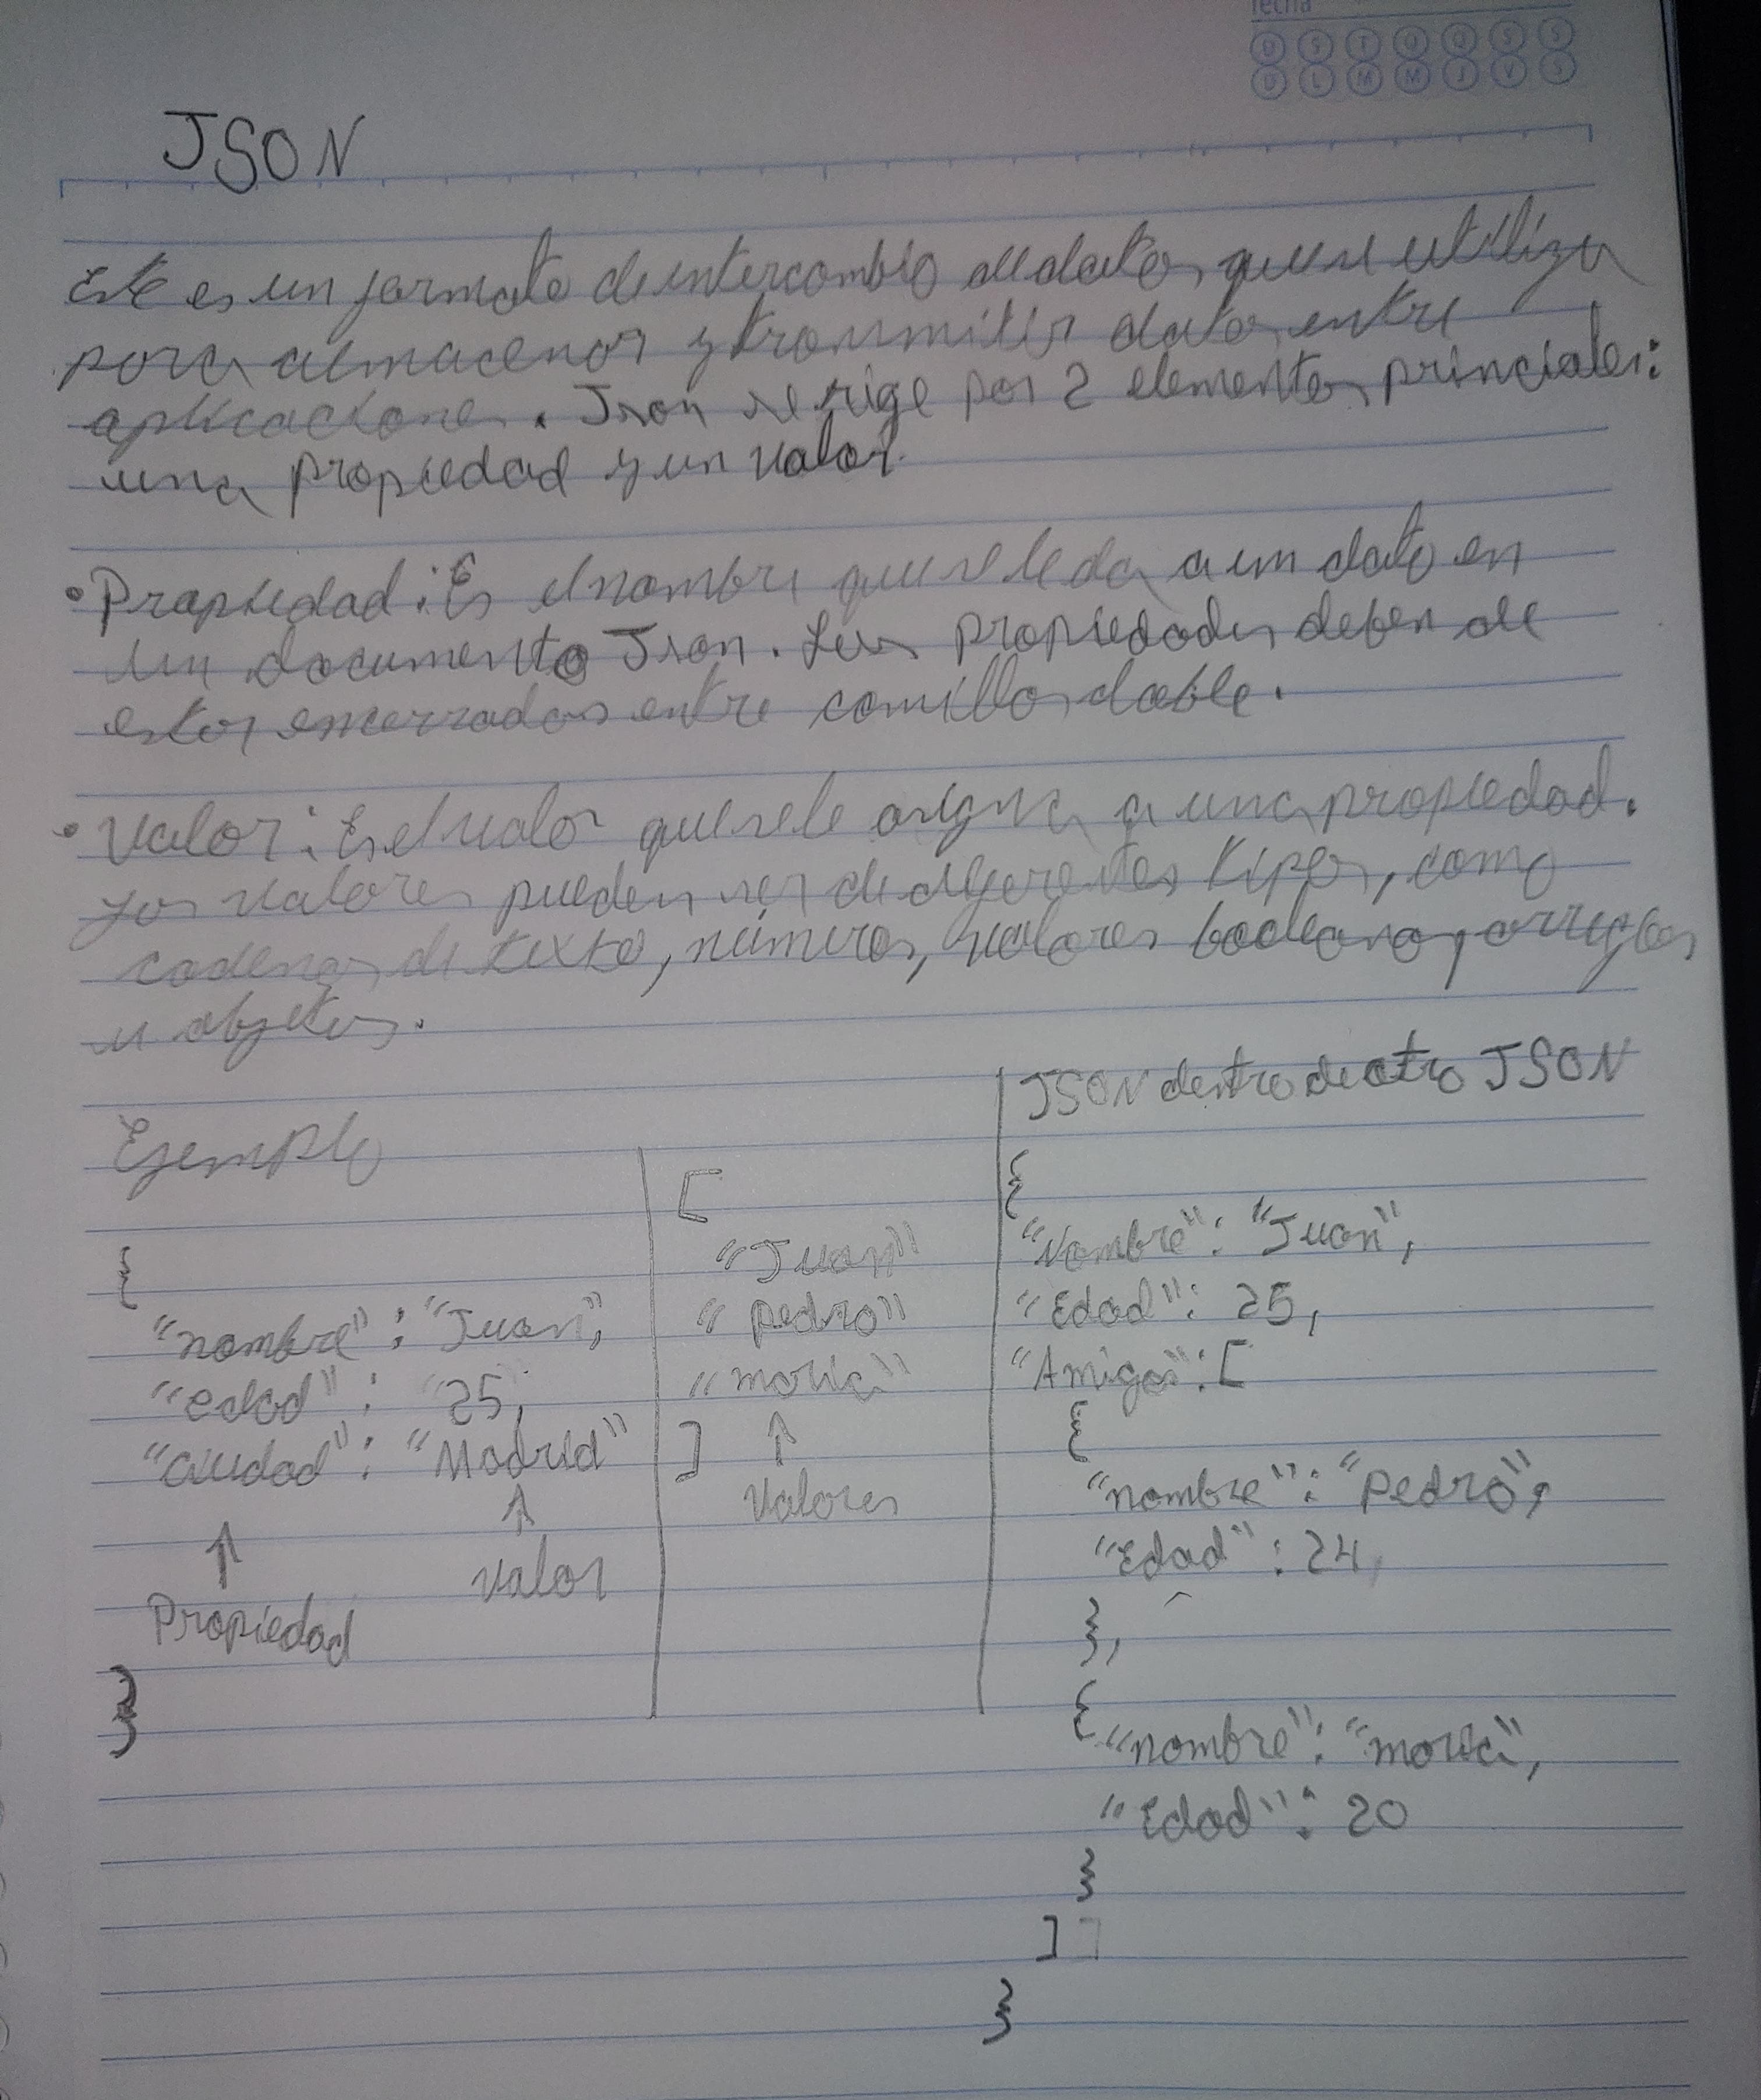 fecha
D S T Q Q S S
D L M M J V S
JSON
Este es un formato de intercambio de datos, que se utiliza
para almacenar y transmitir datos entre
aplicaciones. Json se rige por 2 elementos princiales:
una propiedad y un valor.
• Propiedad: Es el nombre que se le da a un dato en
un documento Json. Las propiedades deben de
estar encerradas entre comillas doble.
• Valor: Es el valor que se le asigna a una propiedad.
Los valores pueden ser de diferentes tipos, como
cadenas de texto, números, valores booleano, arreglos
u objetos.
Ejemplo
{
"nombre": "Juan",
"edad": "25,
"ciudad": "Madrid"
↑ ↑
Propiedad Valor
}
[
"Juan"
"Pedro"
"maria"
] ↑
Valores
JSON dentro de otro JSON
{
"Nombre": "Juan",
"Edad": 25,
"Amigos": [
{
"nombre": "Pedro",
"Edad": 24,
},
{
"nombre": "maria",
"Edad": 20
}
]
}